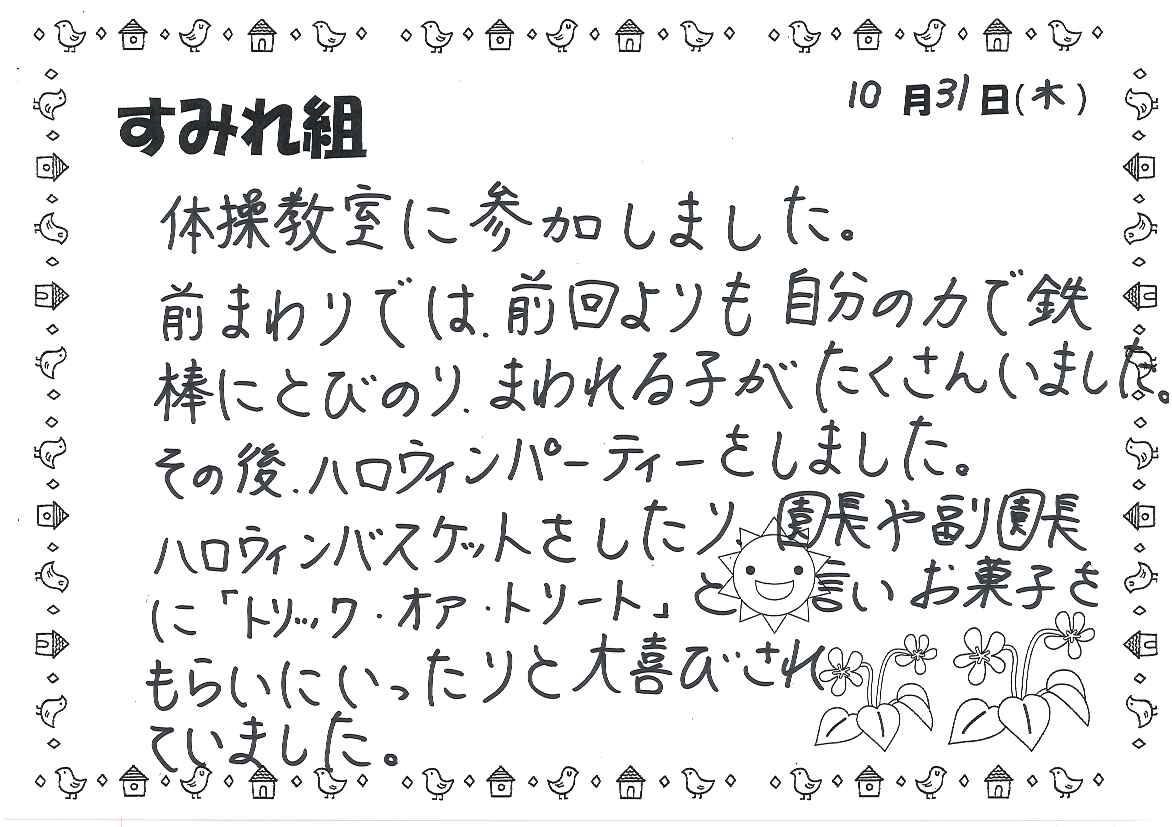 10月31日(木)
すみれ組
体操教室に参加しました。
前まわりでは、前回よりも自分の力で鉄
棒にとびのり、まわれる子がたくさんいました。
その後、ハロウィンパーティーをしました。
ハロウィンバスケットをしたり、園長や副園長
に「トリック・オア・トリート」と言いお菓子を
もらいにいったりと大喜びされ
ていました。